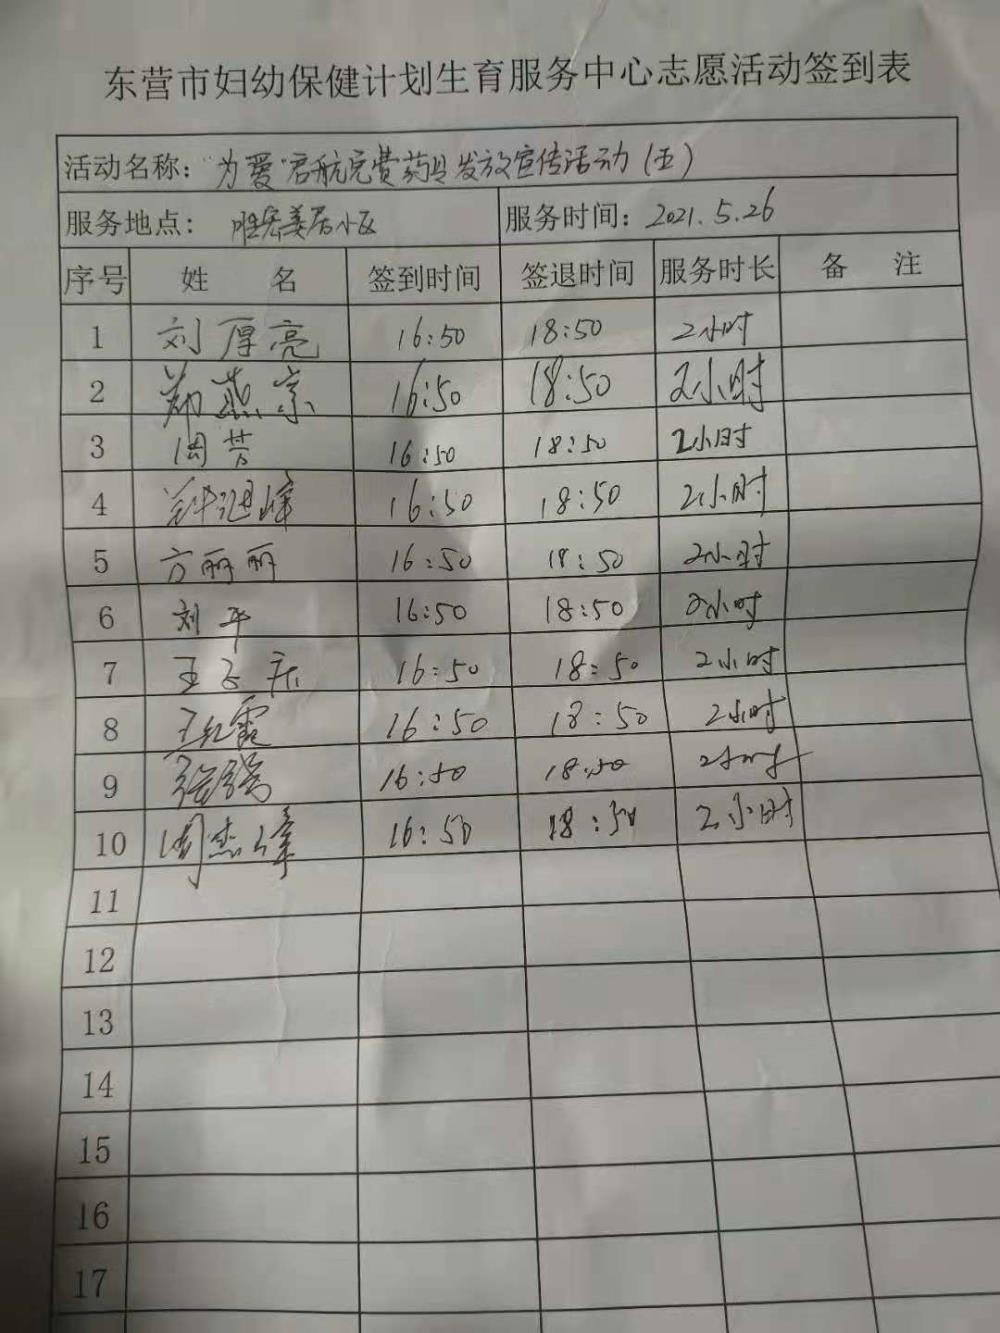 东营市妇幼保健计划生育服务中心志愿活动签到表
活动名称："为爱"启航免费药具发放宣传活动（五）
服务地点：小区 服务时间：2021.5.26
序号 姓 名 签到时间 签退时间 服务时长 备 注
1 刘厚亮 16:50 18:50 2小时
2 郑燕京 16:50 18:50 2小时
3 周芳 16:50 18:50 2小时
4 16:50 18:50 2小时
5 方丽丽 16:50 18:50 2小时
6 刘平 16:50 18:50 2小时
7 16:50 18:50 2小时
8 王红霞 16:50 18:50 2小时
9 张强 16:50 18:50 2小时
10 周杰峰 16:50 18:50 2小时
11
12
13
14
15
16
17